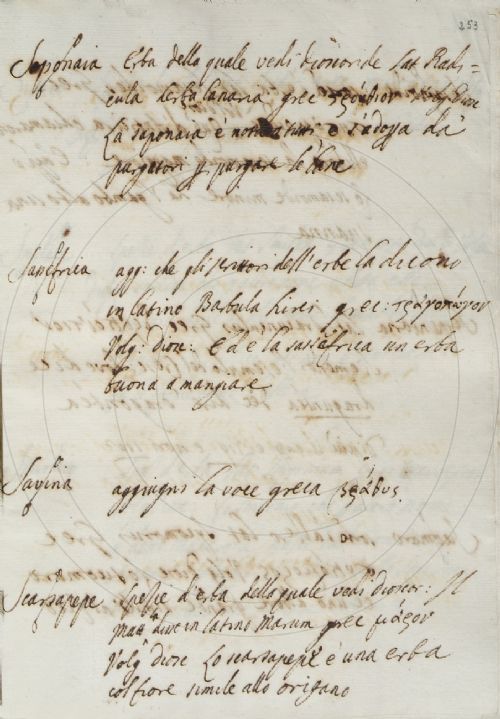 253
Saponaia Erba della quale vedi dioscoride Lat Radi=
cula herba lanaria grec Volg Diosc
La saponaia è nota a tutti e s'adopra da
purgatori p purgare le lane
Sassefrica agg: che gli scrittori dell'erbe la dicono
in latino Barbula hirci grec: τραγοπώγον
Volg: diosc: ed è la sassefrica un erba
buona a mangiare
Savina aggiugni la voce greca βράθυς.
Scarsapepe Spezie d'erba della quale vedi dioscor: Il
Matt dice in latino Marum grec μάρον
Volg diosc Lo scarsapepe è una erba
col fiore simile allo origano